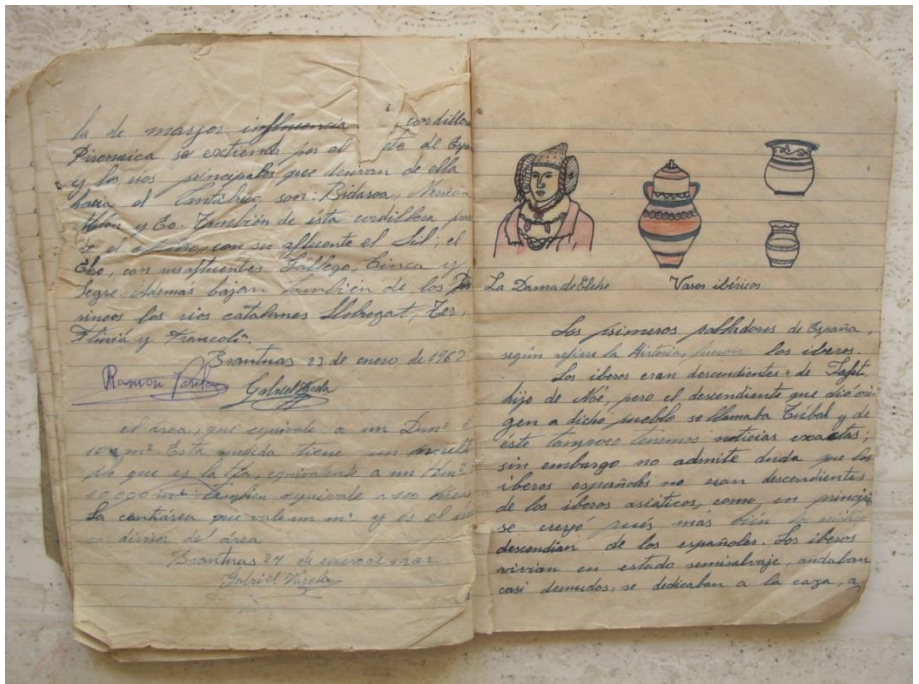 la de mayor influencia cordillera
Pirenaica se extiende por el de Espa
y los rios principales que derivan de ella
hacia el Cantábrico son: Bidasoa, Nervion
Nalón y Eo. También de ésta cordillera
se el con su afluente el Sil; el
Ebo, con sus afluentes Gállego, Cinca y
Segre. Además bajan también de los Pi
rineos los rios catalanes Llobregat, Ter,
Fluviá y Francoli.
Brantuas 23 de enero de 1962
Ramón Gabriel Varela
el área, que equivale a un Dam²
100 m². Esta medida tiene un múlti
plo que es la Ha, equivalente a un Hm²
10.000 m²; también equivale a 100 áreas
La centiárea que vale un m² y es el
divisor del área
Brantuas 24 de enero de 1962
Gabriel Varela
La Dama de Elche Vasos ibéricos
Los primeros pobladores de España,
según refiere la Historia, fueron los iberos.
Los iberos eran descendientes de Jafet,
hijo de Noé, pero el descendiente que dió ori
gen a dicho pueblo se llamaba Túbal y de
éste tampoco tenemos noticias exactas;
sin embargo no admite duda que los
iberos españoles no eran descendientes
de los iberos asiáticos, como, en principio
se creyó pues más bien
descendian de los españoles. Los iberos
vivian en estado semisalvaje, andaban
casi desnudos, se dedicaban a la caza, a